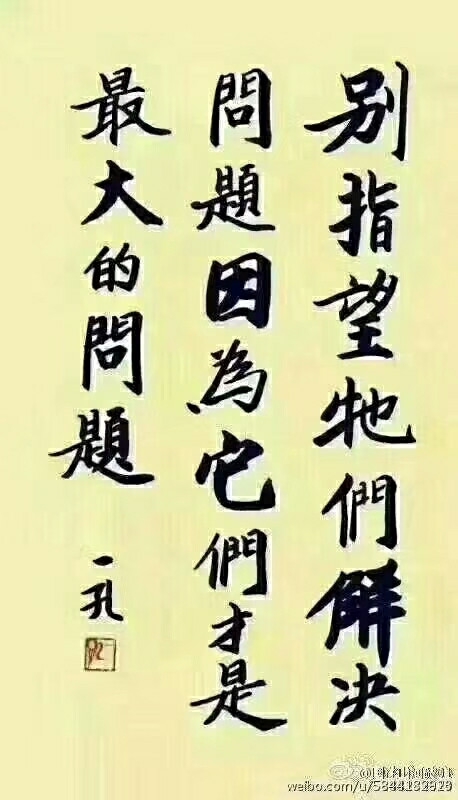 别指望牠們解决
問題因為它們才是
最大的問題
一孔